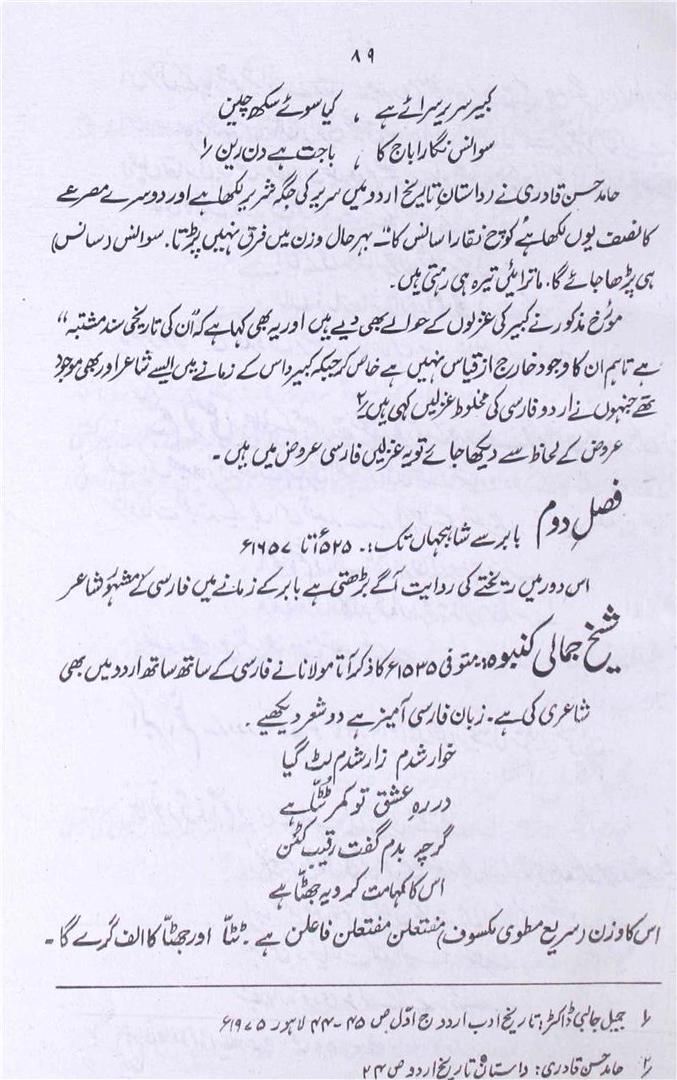 ۸۹
کبیر سریر سرائے ہے ، کیا سوئے سکھ چین
سوانس نگارا باج کا ، باجت ہے دن رین را
حامد حسن قادری نے (داستانِ تاریخ اردو میں سریر کی جگہ شریر لکھا ہے اور دوسرے مصرعے
کا نصف یوں لکھا ہے کوچ نقارا سانس کا“ بہرحال وزن میں فرق نہیں پڑتا۔ سوانس (سانس)
ہی پڑھا جائے گا۔ ماترائیں تیرہ ہی رہتی ہیں۔
مورخ مذکور نے کبیر کی غزلوں کے حوالے بھی دیے ہیں اور یہ بھی کہا ہے کہ اُن کی تاریخی سند مشتبہ “
ہے تاہم ان کا وجود خارج از قیاس نہیں ہے خاص کر جبکہ کبیر داس کے زمانے میں ایسے شاعر اور بھی موجود
تھے جنہوں نے اردو فارسی کی مخلوط غزلیں کہی ہیں ۲
عروض کے لحاظ سے دیکھا جائے تو یہ غزلیں فارسی عروض میں ہیں ۔
فصلِ دوم بابر سے شاہجہاں تک :۔ ۱۵۲۵ء تا ۱۶۵۷ء
اس دور میں ریختے کی روایت آگے بڑھتی ہے بابر کے زمانے میں فارسی کے مشہور شاعر
شیخ جمالی کنبوہ: متوفی ۱۵۳۵ء کا ذکر آتا مولانا نے فارسی کے ساتھ ساتھ اردو میں بھی
شاعری کی ہے۔ زبان فارسی آمیز ہے دو شعر دیکھیے ۔
خوار شدم زار شدم لٹ گیا
در رہِ عشق تو کمر ٹٹا ہے
گرچہ بدم گفت رقیب کٹن
اس کا کہا مت کرو یہ جھٹا ہے
اس کا وزن (سریع مطوی مکسوف) مفتعلن مفتعلن فاعلن ہے ۔ ٹٹا اور جھٹا کا الف گرے گا ۔
۱ جمیل جالبی ڈاکٹر: تاریخ ادب اردو ج اوّل ص ۴۵-۴۴ لاہور ۱۹۷۵ء
۲ حامد حسن قادری: داستانِ تاریخ اردو ص ۲۴